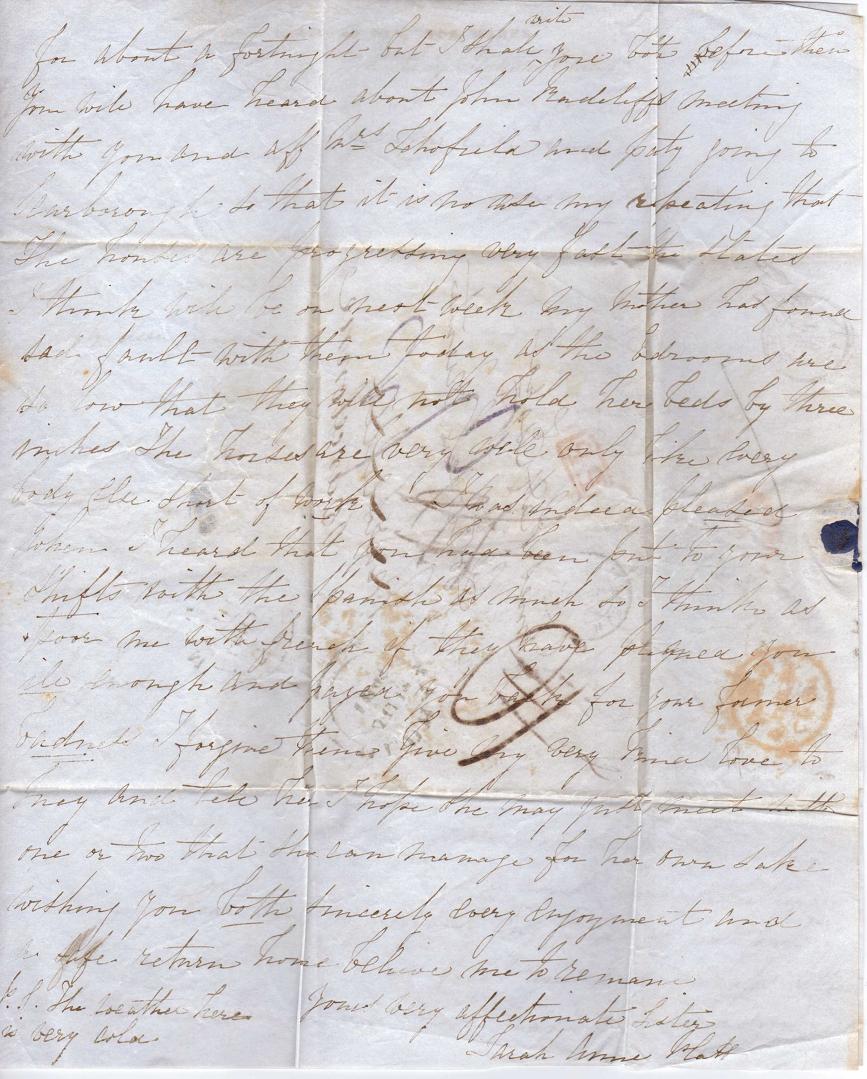 write
for about a fortnight but I shall you both before then
You will have heard about John Radcliffs meeting
with you and off Mrs Schofield and paty going to
Scarborough so that it is no use my repeating that
The houses are progressing very fast the slates
I think will be on next week my Mother has found
sad fault with them today as the bedrooms are
so low that they will not hold her beds by three
inches The horses are very well only like every
body else short of work I was indeed pleased
when I heard that you had been put to your
shifts with the Spanish as much so I think as
poor me with french if they have you
ile enough and payed you for your former
badness I forgive them Give my very kind love to
and tell her I hope she may just meet with
one or two that she can manage for her own sake
wishing you both sincerely every enjoyment and
a safe return home believe me to remain
your very affectionate Sister
Sarah Anne Platt
P.S. The weather here
is very cold